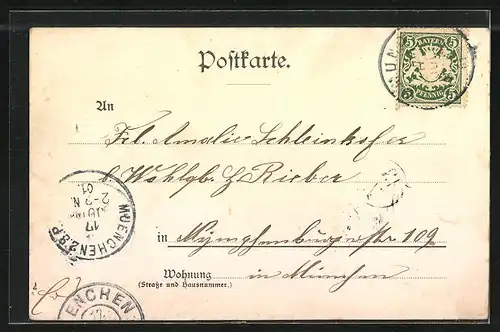 Postkarte.
BAYERN
5 5
5 5
PFENNIG
An
Frl. Amalie Schleinkofer
Wohlgb. H. Rieber
in Nymphenburgerstr 109
Wohnung in München
(Straße und Hausnummer.)
MUENCHEN 2. B.P.
17
JUN
2-3 N.
01.
ENCHEN